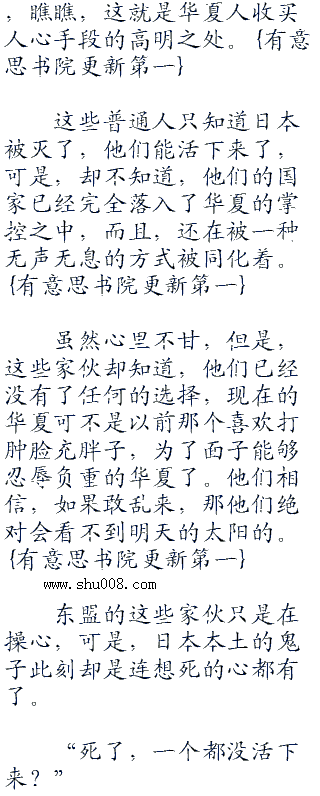 ，瞧瞧，这就是华夏人收买
人心手段的高明之处。{有意
思书院更新第一}
这些普通人只知道日本
被灭了，他们能活下来了，
可是，却不知道，他们的国
家已经完全落入了华夏的掌
控之中，而且，还在被一种
无声无息的方式被同化着。
{有意思书院更新第一}
虽然心里不甘，但是，
这些家伙却知道，他们已经
没有了任何的选择，现在的
华夏可不是以前那个喜欢打
肿脸充胖子，为了面子能够
忍辱负重的华夏了。他们相
信，如果敢乱来，那他们绝
对会看不到明天的太阳的。
{有意思书院更新第一}
www.shu008.com
东盟的这些家伙只是在
操心，可是，日本本土的鬼
子此刻却是连想死的心都有
了。
“死了，一个都没活下
来？”